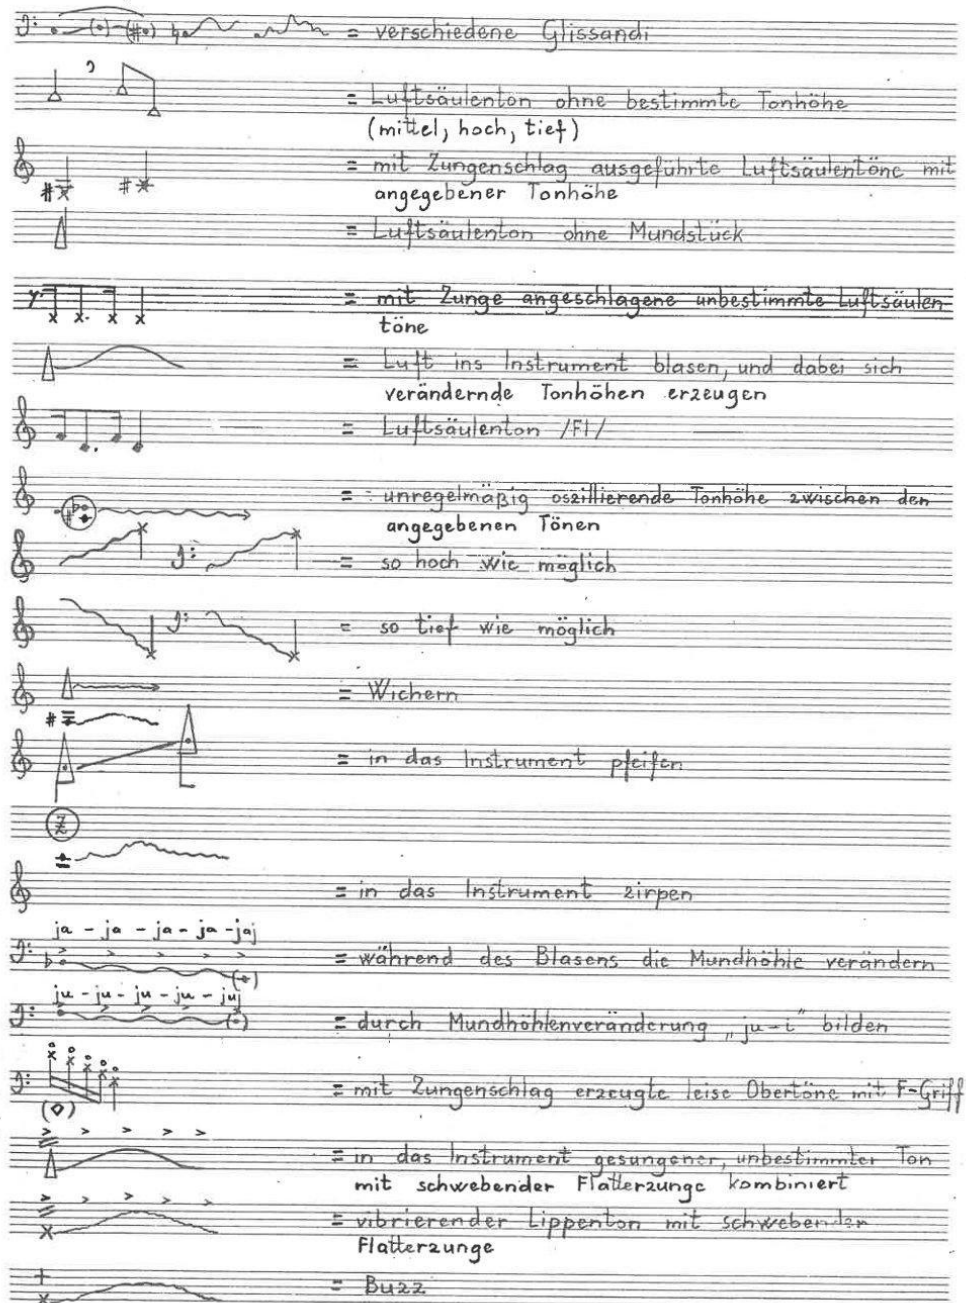 = verschiedene Glissandi
= Luftsäulenton ohne bestimmte Tonhöhe
(mittel, hoch, tief)
= mit Zungenschlag ausgeführte Luftsäulentöne mit
angegebener Tonhöhe
= Luftsäulenton ohne Mundstück
= mit Zunge angeschlagene unbestimmte Luftsäulen
töne
= Luft ins Instrument blasen, und dabei sich
verändernde Tonhöhen erzeugen
= Luftsäulenton /Fl/
= unregelmäßig oszillierende Tonhöhe zwischen den
angegebenen Tönen
= so hoch wie möglich
= so tief wie möglich
= Wichern
= in das Instrument pfeifen
= in das Instrument zirpen
ja - ja - ja - ja - jaj
= während des Blasens die Mundhöhle verändern
ju - ju - ju - ju - juj
= durch Mundhöhlenveränderung „ju-i" bilden
= mit Zungenschlag erzeugte leise Obertöne mit F-Griff
= in das Instrument gesungener, unbestimmter Ton
mit schwebender Flatterzunge kombiniert
= vibrierender Lippenton mit schwebender
Flatterzunge
= Buzz